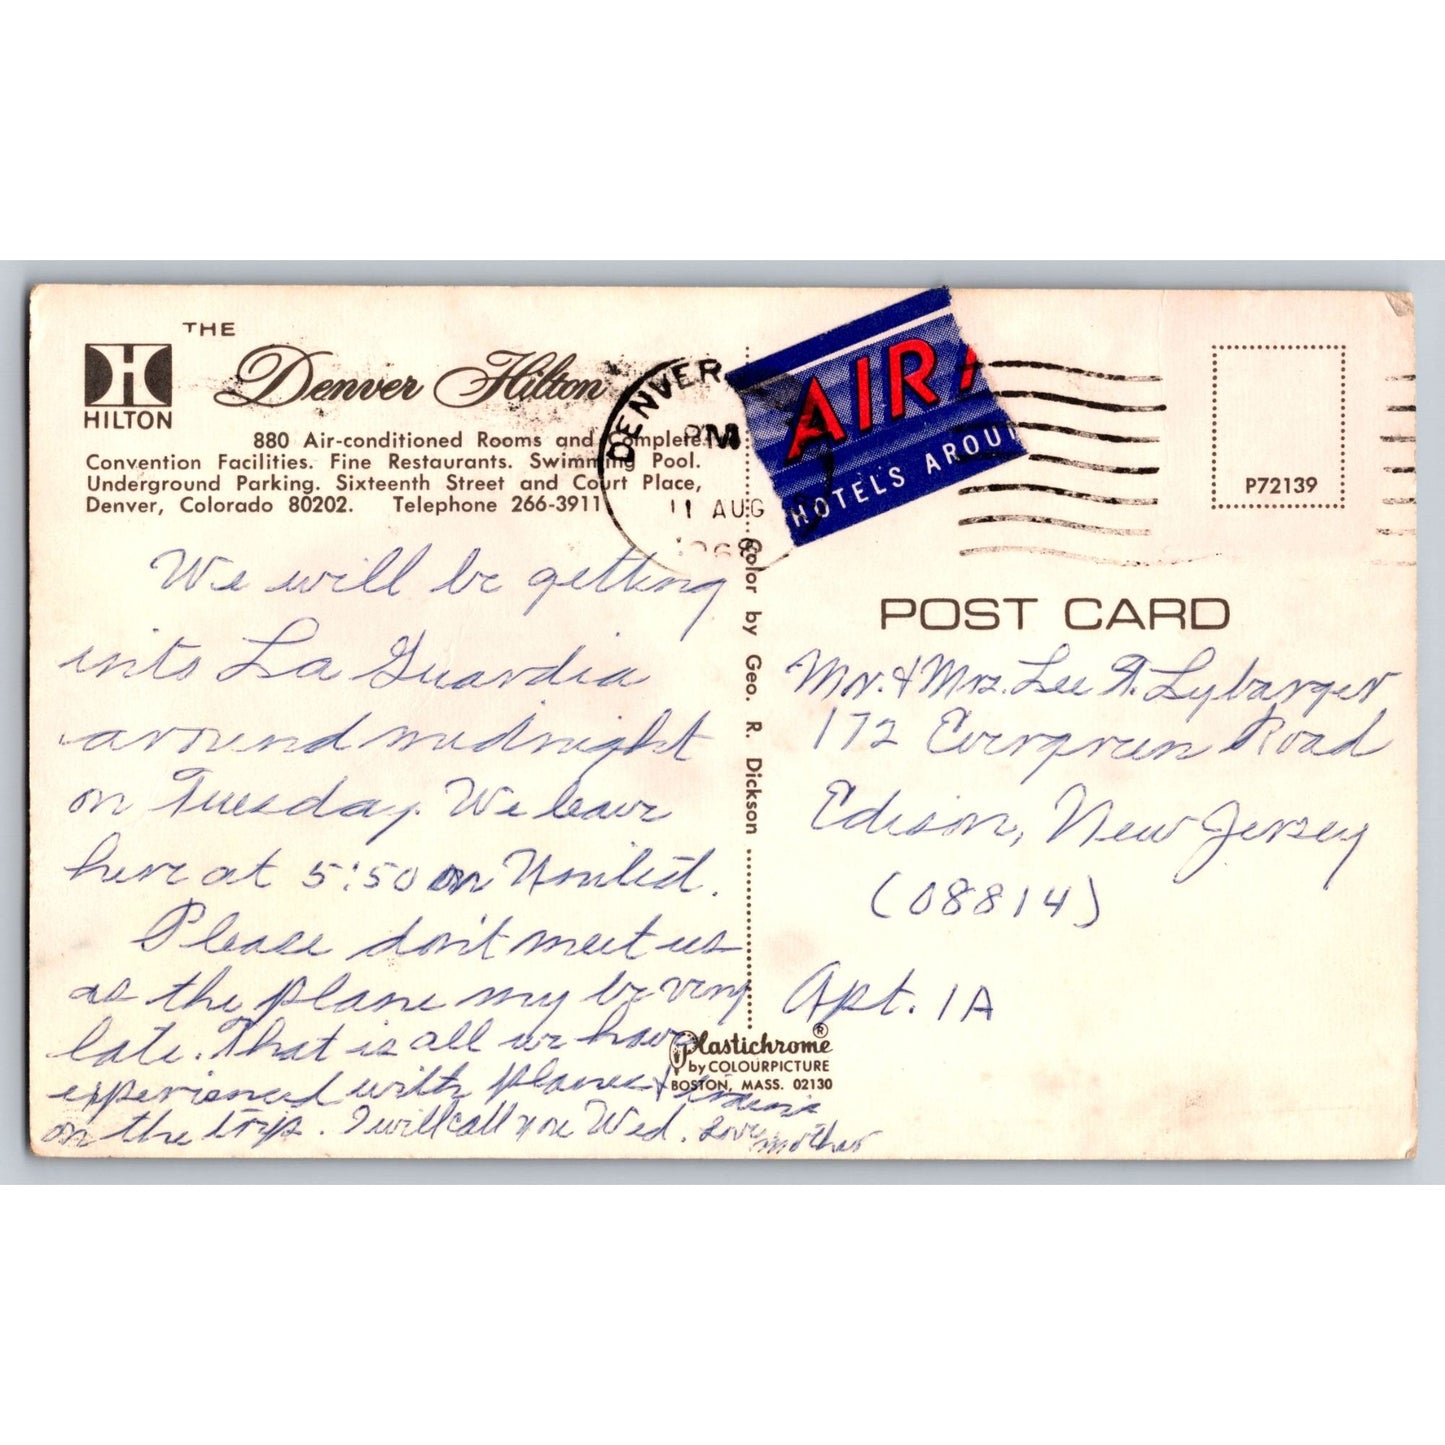 THE
Denver Hilton
HILTON
880 Air-conditioned Rooms and Complete
Convention Facilities. Fine Restaurants. Swimming Pool.
Underground Parking. Sixteenth Street and Court Place,
Denver, Colorado 80202. Telephone 266-3911
DENVER
PM
11 AUG
AIR
HOTELS AROU
P72139
We will be getting
into La Guardia
around midnight
on Tuesday. We leave
here at 5:50 on United.
Please don't meet us
as the plane my be very
late. That is all we have
experienced with planes &
on the trip. I will call you Wed. Love
mother
Color by Geo. R. Dickson
Plastichrome®
by COLOURPICTURE
BOSTON, MASS. 02130
POST CARD
Mr. & Mrs. Lee A. Lybarger
172 Evergreen Road
Edison, New Jersey
(08814)
Apt. 1A